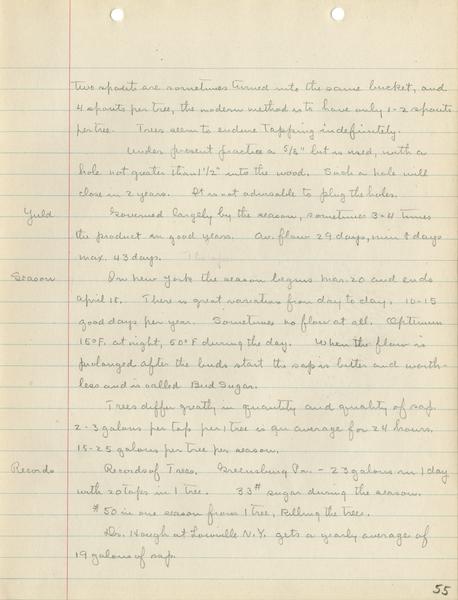 two spouts are sometimes turned into the same bucket, and
4 spouts per tree, the modern method is to have only 1-2 spouts
per tree. Trees seem to endure Tapping indefinitely.
Under present practice a 5/8" bit is used, with a
hole not greater than 1 1/2" into the wood. Such a hole will
close in 2 years. It is not advisable to plug the holes.
Yield Governed largely by the season, sometimes 3-4 times
the product in good years. Av. flow 29 days, min 8 days
max. 43 days.
Season In New York the season begins Mar. 20 and ends
April 18. There is great variation from day to day. 10-15
good days per year. Sometimes no flow at all. Optimum
15°F. at night, 50°F during the day. When the flow is
prolonged after the buds start the sap is bitter and worth-
less and is called Bud Sugar.
Trees differ greatly in quantity and quality of sap
2-3 galons per tap per tree is an average for 24 hours.
15-25 galons per tree per season.
Records Records of Trees. Greensburg Pa. - 23 galons in 1 day
with 20 taps in 1 tree. 33# sugar during the season.
#50 in one season from 1 tree, killing the tree.
Dr. Hough at Lowville N.Y. gets a yearly average of
19 galons of sap
55